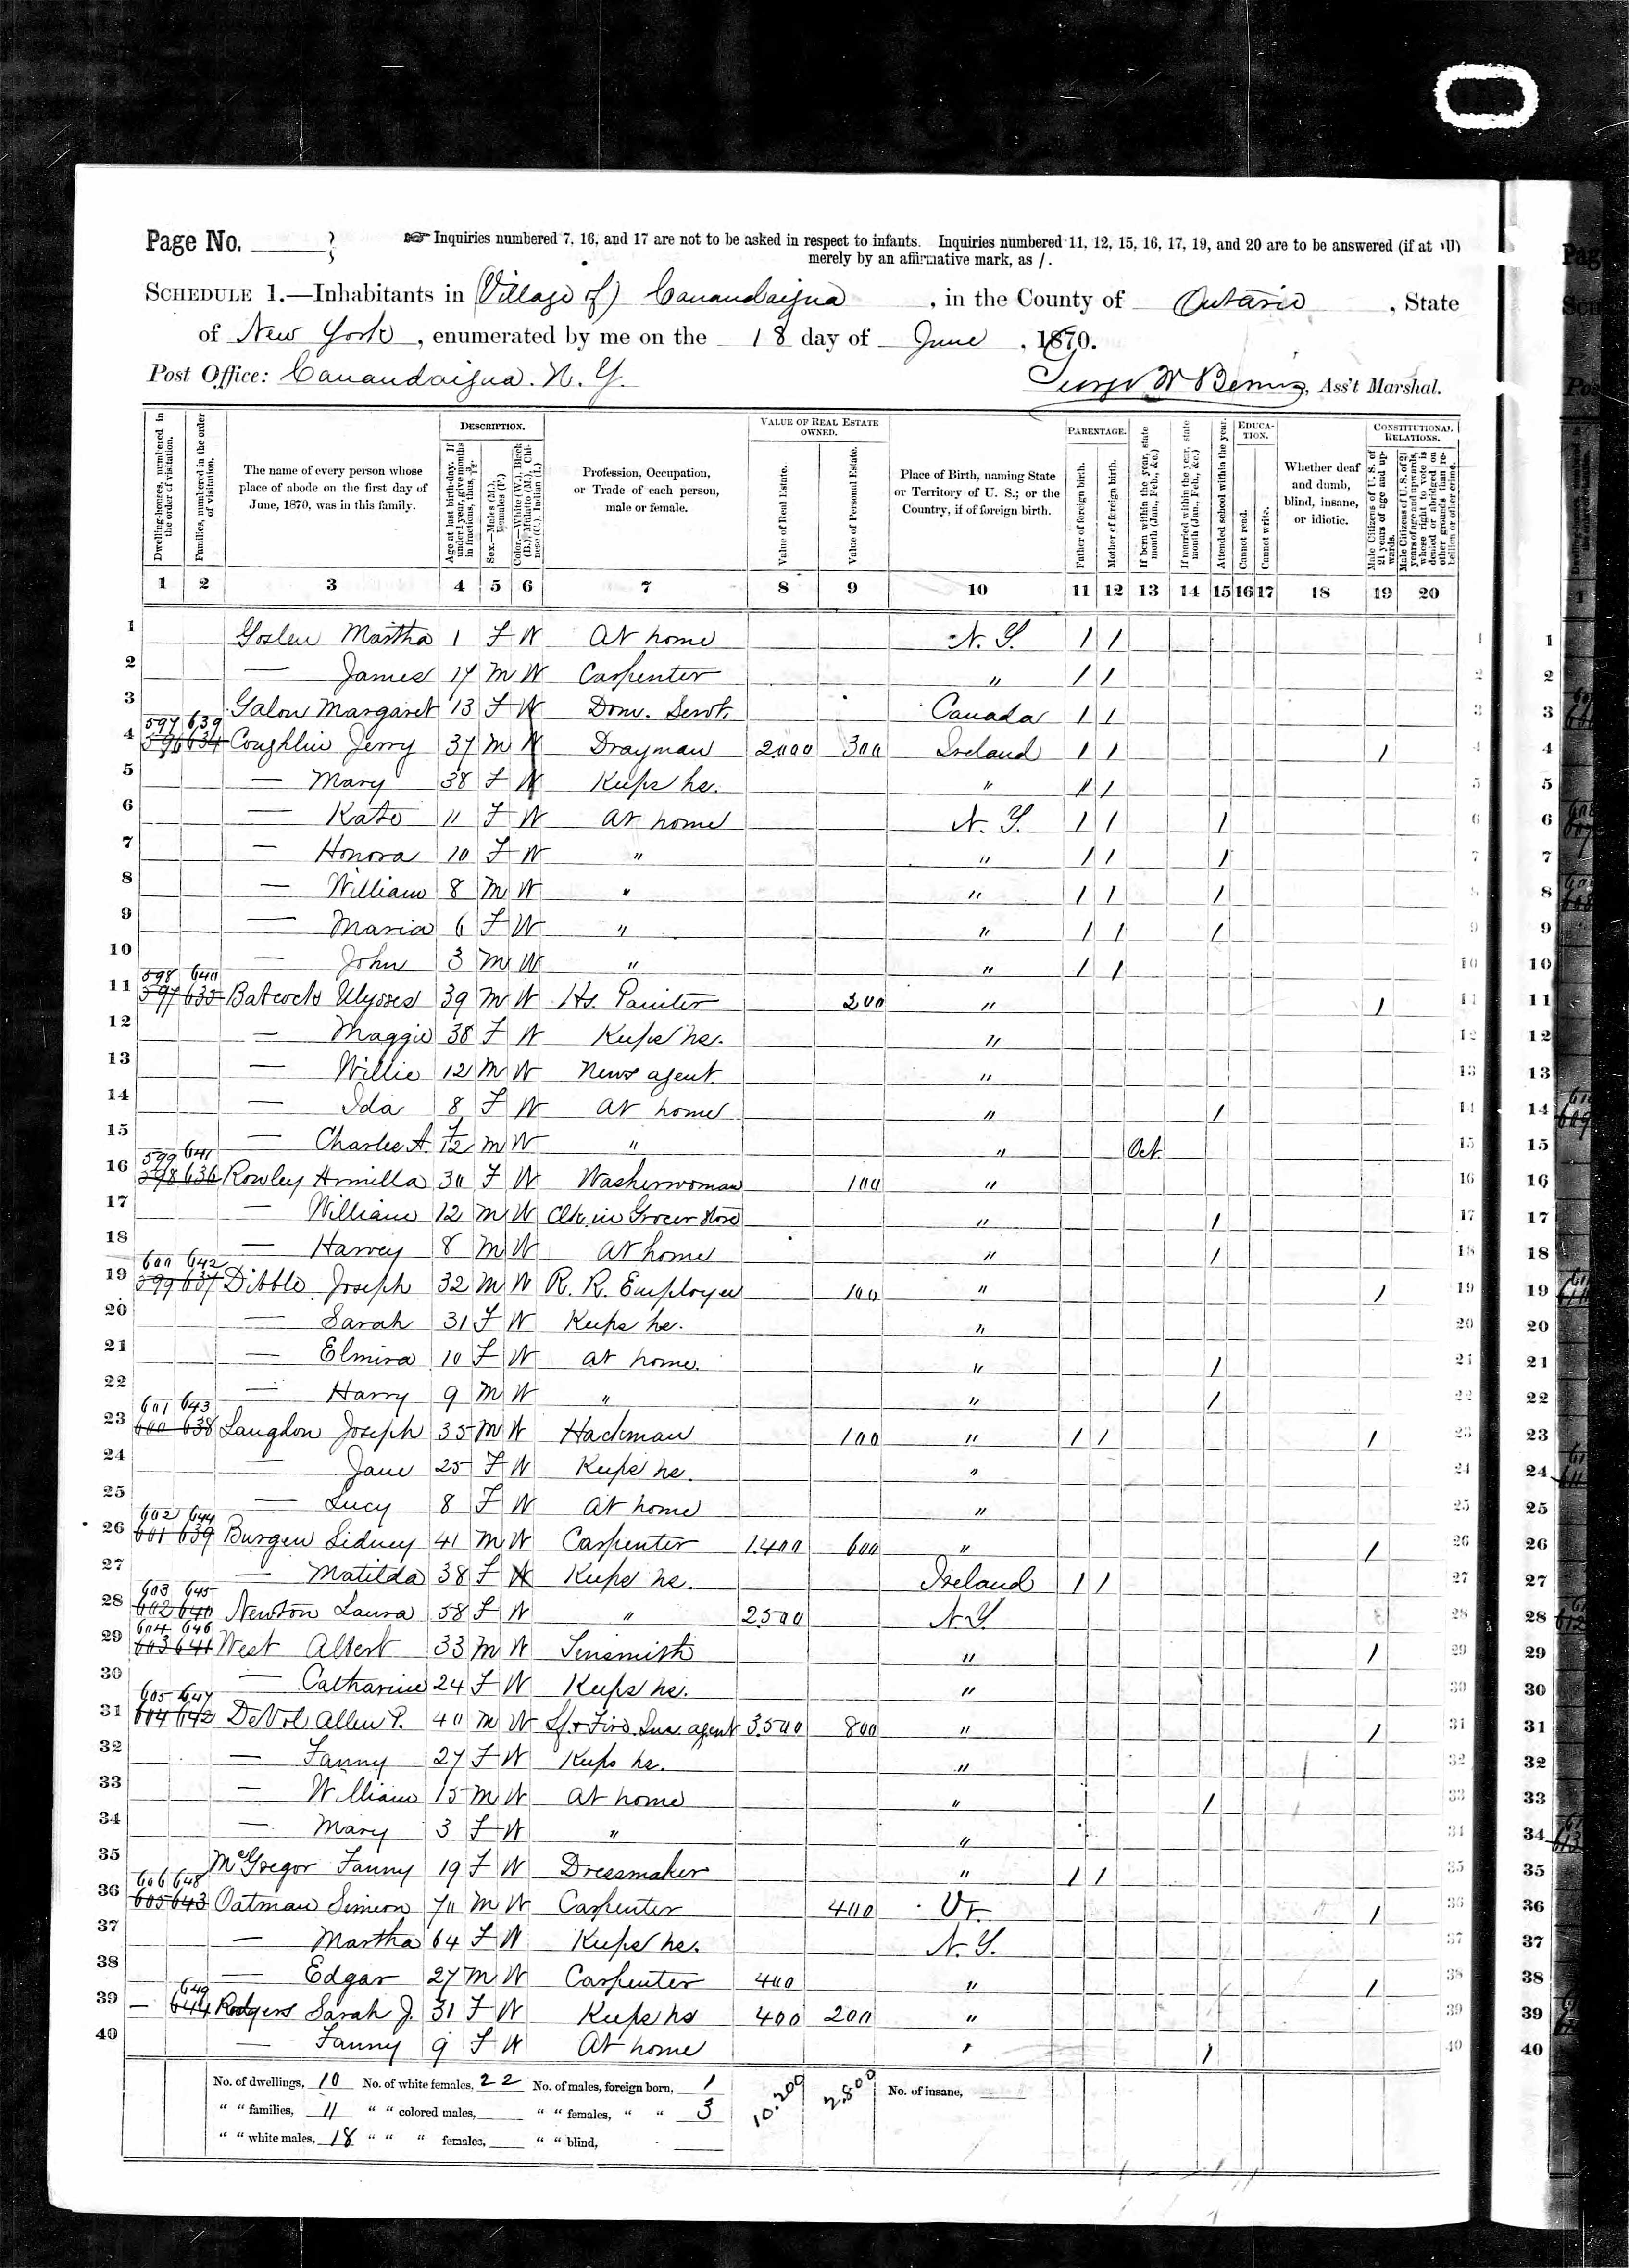 Page No.
☞ Inquiries numbered 7, 16, and 17 are not to be asked in respect to infants. Inquiries numbered 11, 12, 15, 16, 17, 19, and 20 are to be answered (if at all)
merely by an affirmative mark, as /.
SCHEDULE 1.—Inhabitants in (Village of) Canandaigua, in the County of Ontario, State
of New York, enumerated by me on the 18 day of June, 1870.
Post Office: Canandaigua. N. Y.
George W Bemis, Ass't Marshal.
Dwelling-houses, numbered in the order of visitation.
Families, numbered in the order of visitation.
The name of every person whose place of abode on the first day of June, 1870, was in this family.
DESCRIPTION.
Age at last birth-day. If under 1 year, give months in fractions, thus, 3/12.
Sex.—Males (M.), Females (F.)
Color.—White (W.), Black (B.), Mulatto (M.), Chinese (C.), Indian (I.)
Profession, Occupation, or Trade of each person, male or female.
VALUE OF REAL ESTATE OWNED.
Value of Real Estate.
Value of Personal Estate.
Place of Birth, naming State or Territory of U. S.; or the Country, if of foreign birth.
PARENTAGE.
Father of foreign birth.
Mother of foreign birth.
If born within the year, state month (Jan., Feb., &c.)
If married within the year, state month (Jan., Feb., &c.)
Attended school within the year.
EDUCATION.
Cannot read.
Cannot write.
Whether deaf and dumb, blind, insane, or idiotic.
CONSTITUTIONAL RELATIONS.
Male Citizens of U. S. of 21 years of age and upwards.
Male Citizens of U. S. of 21 years of age and upwards, where right to vote is denied or abridged on other grounds than rebellion or other crime.
1 2 3 4 5 6 7 8 9 10 11 12 13 14 15 16 17 18 19 20
1 Goslen Martha 1 F W At home N. Y. / / 1
2 — James 17 M W Carpenter " / / 2
3 Galon Margaret 13 F W Dom. Servt. Canada / / 3
597 639
4 596 634 Coughlin Jerry 37 M W Drayman 2000 300 Ireland / / / 4
5 — Mary 38 F W Keeps hs. " / / 5
6 — Kate 11 F W At home N. Y. / / / 6
7 — Honora 10 F W " " / / / 7
8 — William 8 M W " " / / / 8
9 — Maria 6 F W " " / / / 9
10 — John 3 M W " " / / 10
598 640
11 597 635 Babcock Ulysses 39 M W Hs. Painter 200 " / 11
12 — Maggie 38 F W Keeps hs. " 12
13 — Willie 12 M W News agent " 13
14 — Ida 8 F W At home " / 14
15 — Charlie A. /12 M W " " Oct. 15
599 641
16 598 636 Rowley Armilla 30 F W Washerwoman 100 " 16
17 — William 12 M W Clk in Grocer Store " / 17
18 — Harvey 8 M W At home " / 18
600 642
19 599 637 Dibble Joseph 32 M W R. R. Employee 100 " / 19
20 — Sarah 31 F W Keeps hs. " 20
21 — Elmira 10 F W At home. " / 21
22 — Harry 9 M W " " / 22
601 643
23 600 638 Langdon Joseph 35 M W Hackman 100 " / / / 23
24 — Jane 25 F W Keeps hs. " 24
25 — Lucy 8 F W At home " 25
602 644
26 601 639 Burgen Sidney 41 M W Carpenter 1400 600 " / 26
27 — Matilda 38 F W Keeps hs. Ireland / / 27
603 645
28 602 640 Newton Laura 58 F W " 2500 N. Y. 28
604 646
29 603 641 West Albert 33 M W Tinsmith " / 29
30 — Catharine 24 F W Keeps hs. " 30
605 647
31 604 642 DeVol Allen P. 40 M W Lf & Fire Ins. agent 3500 800 " / 31
32 — Fanny 27 F W Keeps hs. " 32
33 — William 15 M W At home " / 33
34 — Mary 3 F W " " 34
35 McGregor Fanny 19 F W Dressmaker " / / 35
606 648
36 605 643 Oatman Simeon 70 M W Carpenter 400 Vt. / 36
37 — Martha 64 F W Keeps hs. N. Y. 37
38 — Edgar 27 M W Carpenter 400 " / 38
649
39 — 644 Rodgers Sarah J. 31 F W Keeps hs 400 200 " 39
40 — Fanny 9 F W At home " / 40
No. of dwellings, 10 No. of white females, 22 No. of males, foreign born, 1 10.200 2.800 No. of insane,
" " families, 11 " " colored males, " " females, " " 3
" " white males, 18 " " " females, " " blind,